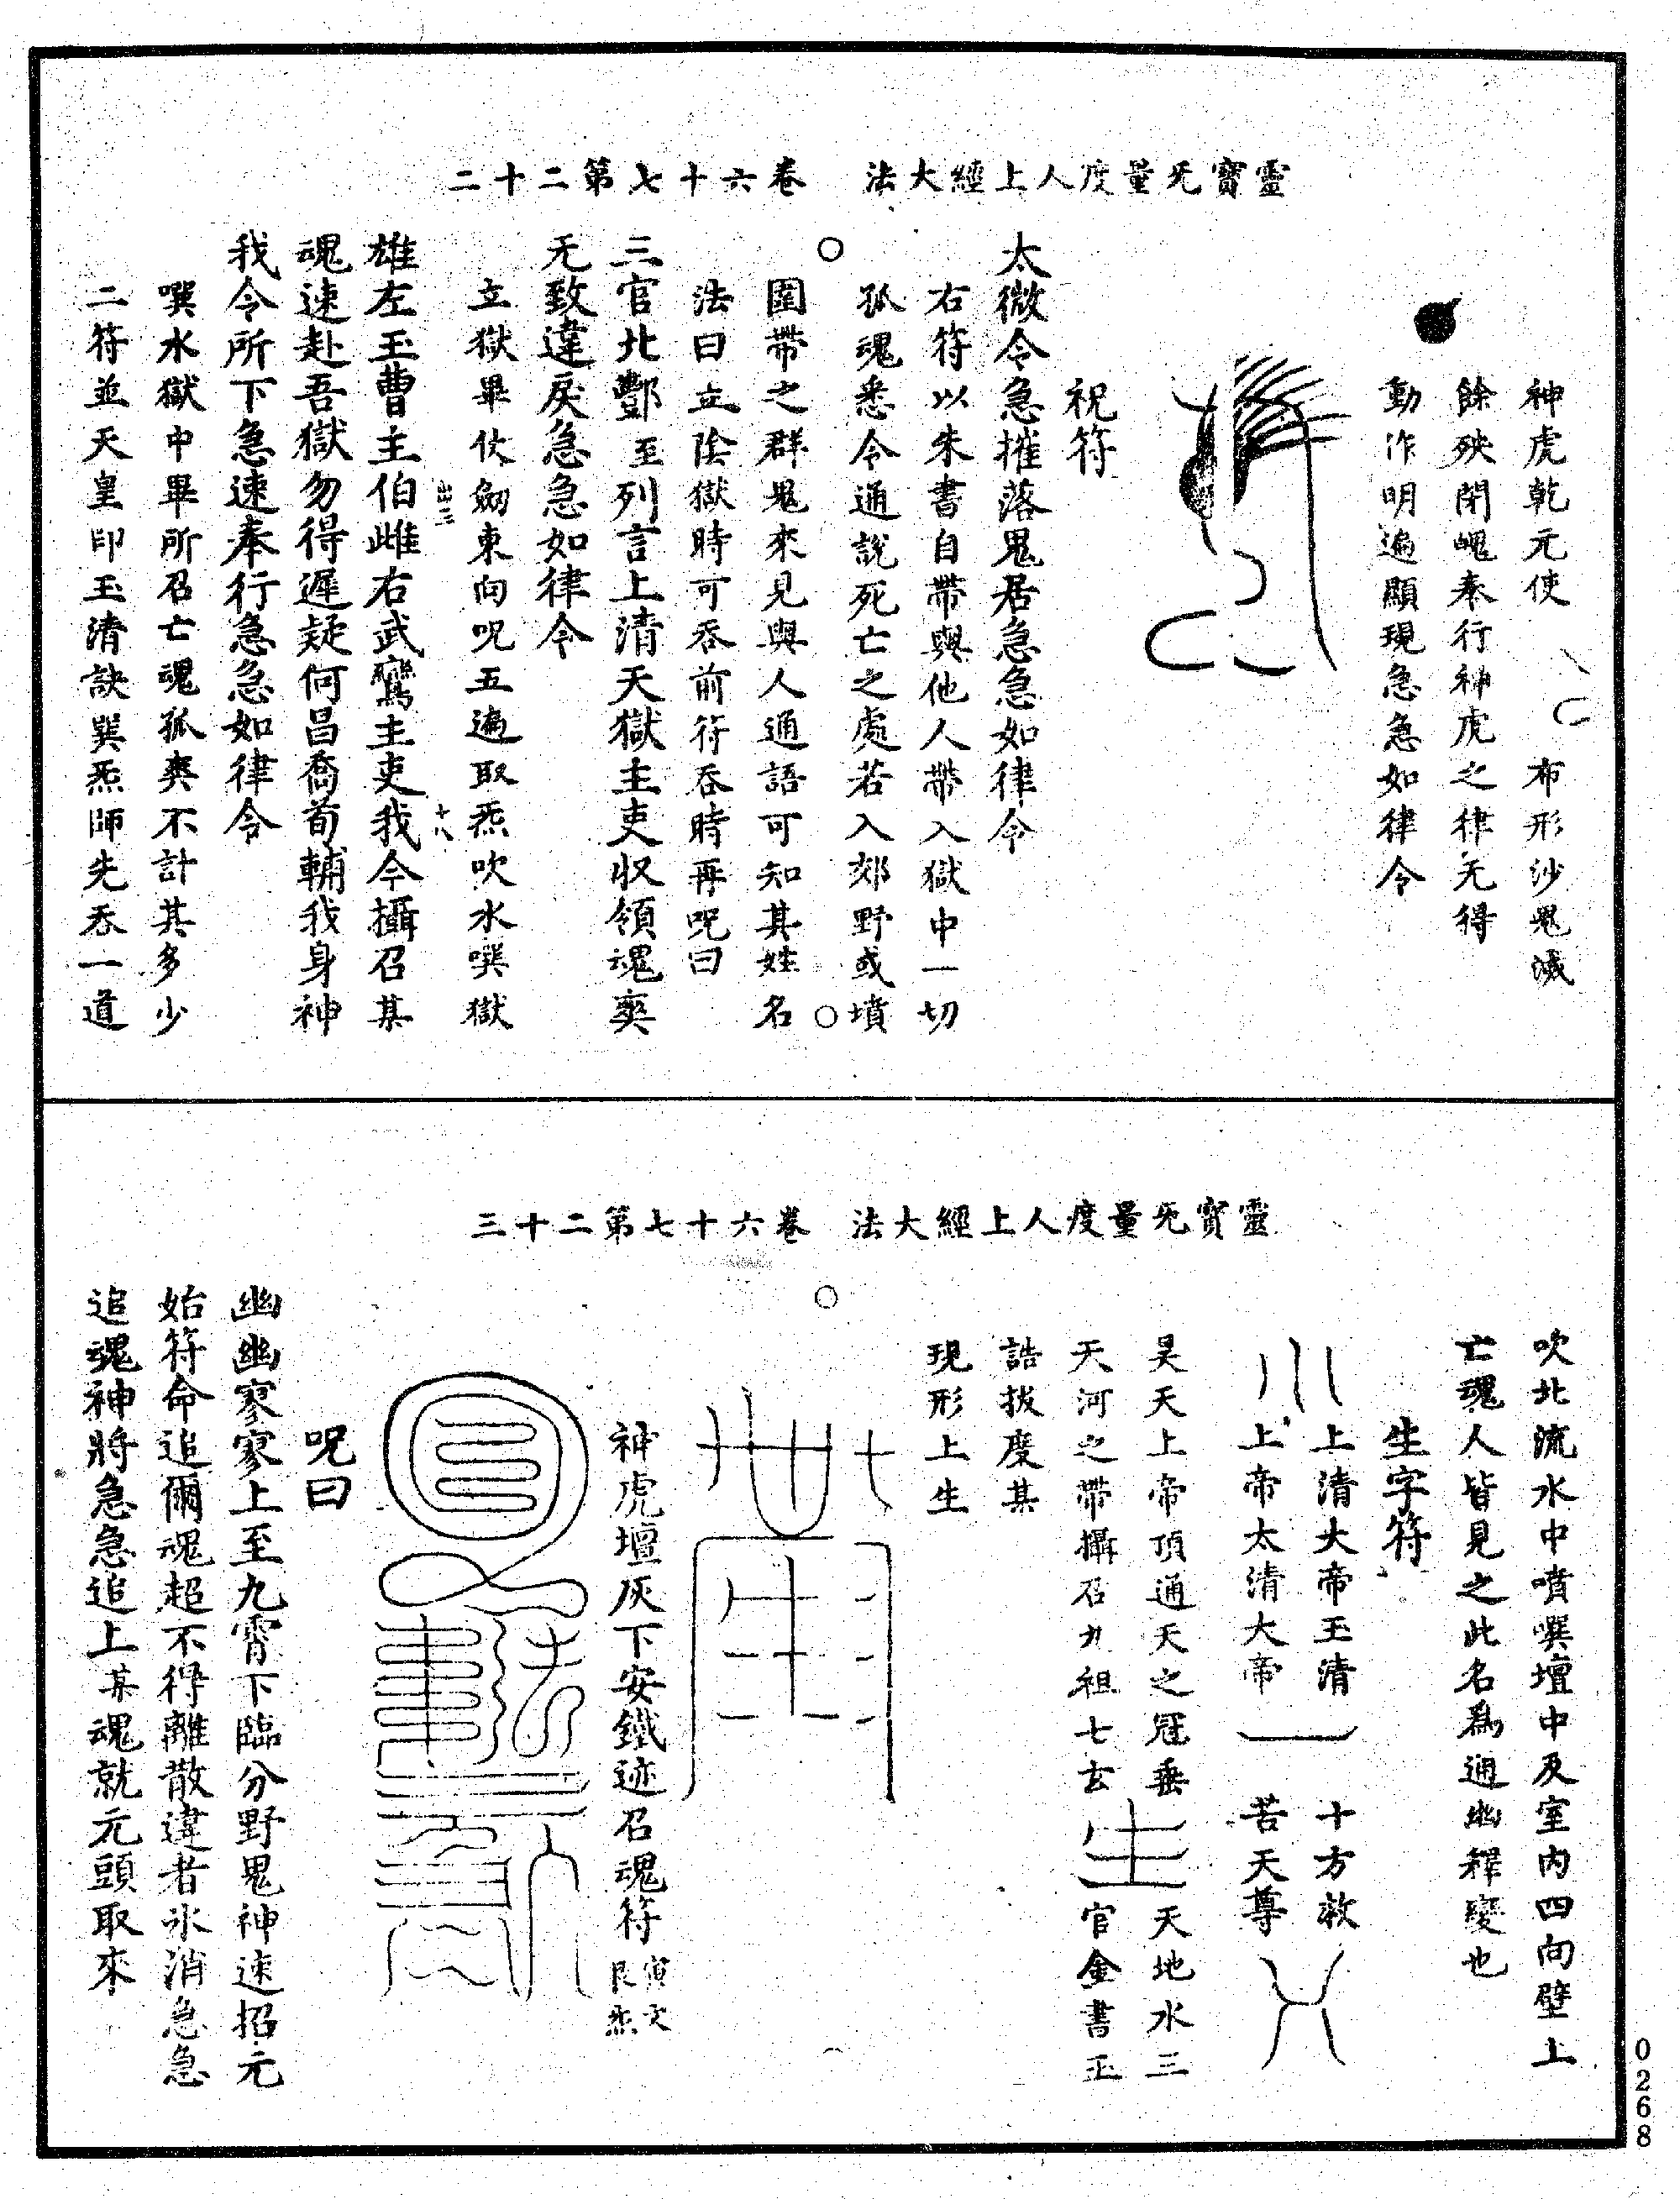 靈寶旡量度人上經大法　卷六十七第二十二
神虎乾元使　布形沙鬼滅
餘殃閉魄奉行神虎之律无得
動作明遍顯現急急如律令
祝符
太微令急摧落鬼居急急如律令
右符以朱書自帶與他人帶入獄中一切
孤魂悉令通說死亡之處若入郊野或墳
圍帶之群鬼來見與人通語可知其姓名
法曰立陰獄時可吞前符吞時再呪曰
三官北酆至列言上清天獄主吏收領魂爽
无致違戾急急如律令
立獄畢仗劒東向呪五遍取炁吹水噀獄
雄左玉曹主伯雌右武鸞主吏我今攝召某
魂速赴吾獄勿得遲疑何昌喬荀輔我身神
我令所下急速奉行急急如律令
噀水獄中畢所召亡魂孤爽不計其多少
二符並天皇印玉清訣巽炁師先吞一道
靈寶旡量度人上經大法　卷六十七第二十三
吹北流水中噴噀壇中及室內四向壁上
亡魂人皆見之此名爲通幽釋變也
生字符
上清大帝玉清　十方救
上帝太清大帝　苦天尊
昊天上帝頂通天之冠垂　天地水三
天河之帶攝召九祖七玄　官金書正
誥拔度某
現形上生
神虎壇灰下安鐵迹召魂符寅文艮炁
呪曰
幽幽寥寥上至九霄下臨分野鬼神速招元
始符命追爾魂超不得離散違者氷消急急
追魂神將急急追上某魂就元頭取來
0268